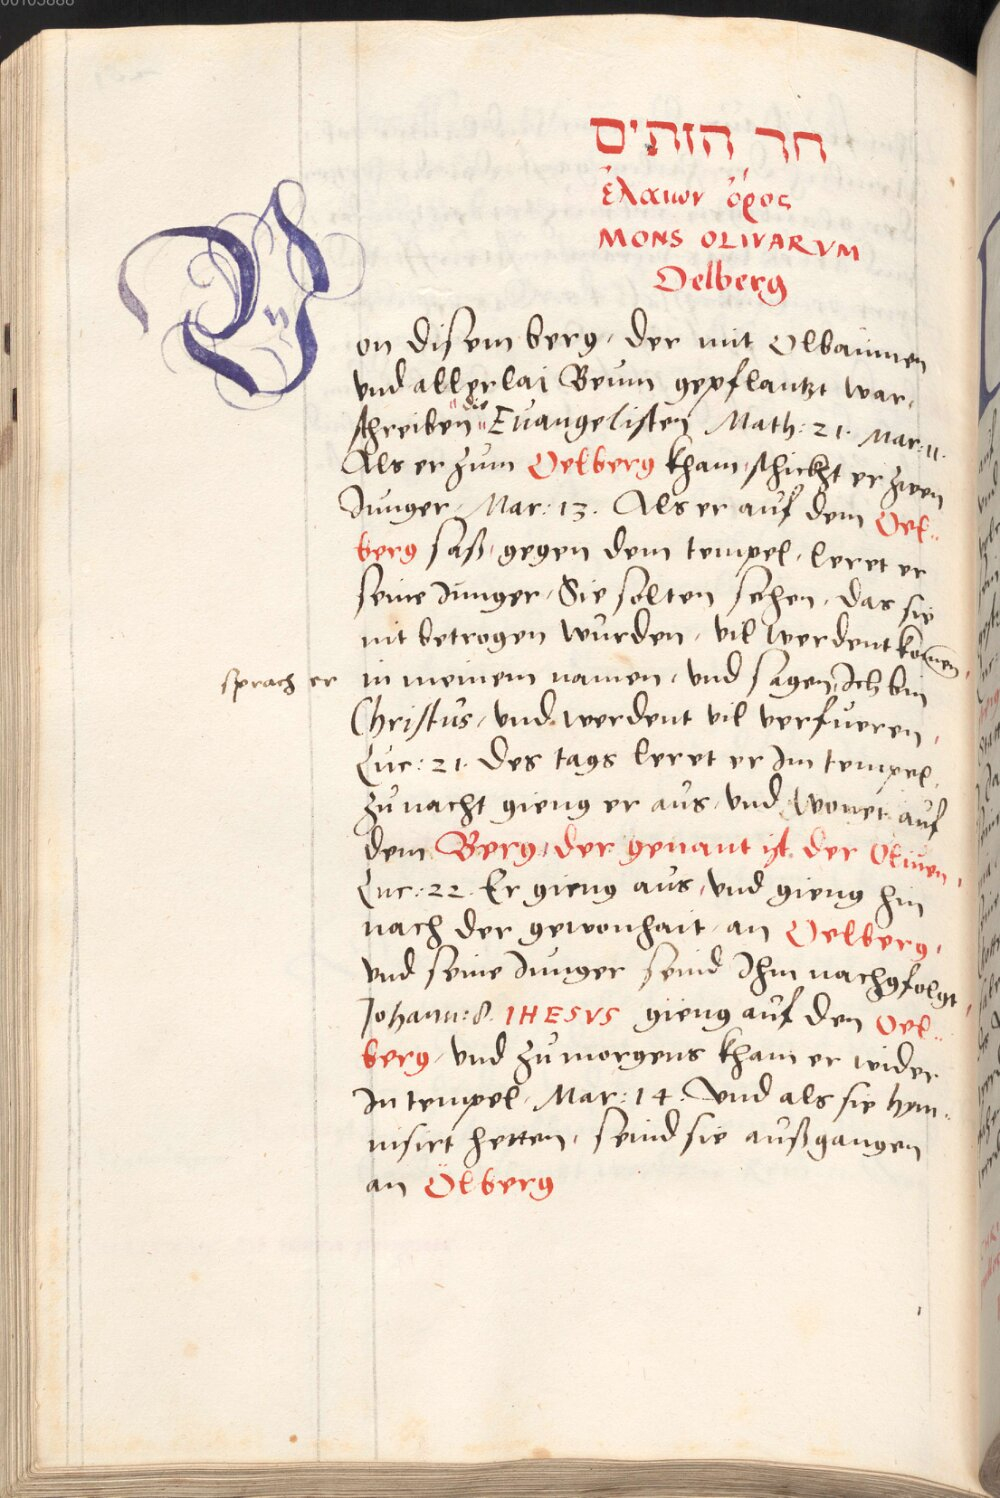 00103888
חר הזתים
ἐλαιων ὄρος
MONS OLIVARVM
Oelberg
Von disem berg, der mit Olbaümen
vnd allerlaj Beum gepflantzt war,
schreiben die Euangelisten Math: 21. Mar: 11.
Als er zum Oelberg kham, schickt er zwen
Junger, Mar: 13. Als er auf dem Oel-
berg saß, gegen dem tempel, leret er
seine Junger, Sie solten sehen, das sie
nit betrogen wurden, vil werdent komen
sprach er in meinem namen, vnd sagen, Ich bin
Christus, vnd werdent vil verfueren,
Luc: 21. des tags leret er Im tempel,
zu nacht gieng er aus, vnd wonet auf
dem Berg, der genant ist der Oliuen,
Luc: 22. Er gieng aus, vnd gieng hin
nach der gewonhait, an Oelberg,
vnd seine Junger seind Ihm nachgfolgt,
Johann: 8. IHESVS gieng auf den Oel-
berg, vnd zu morgens kham er wider
In tempel, Mar: 14. Vnd als sie hym-
nisirt hetten, seind sie außgangen
an Ölberg